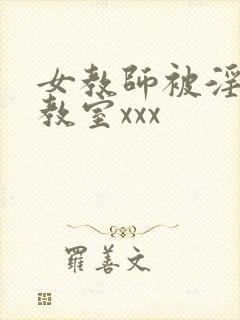 女教師被淫
教室xxx
羅善文